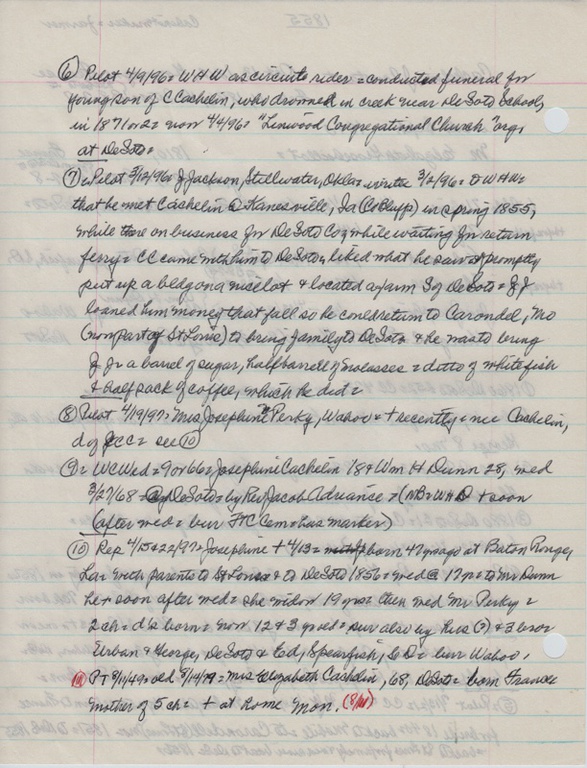 ⑥ Pilot 4/9/96 = WHW as circuit rider = conducted funeral for
young son of C Cachelin, who drowned in creek near DeSoto School,
in 1871 or 2 = now 4/4/96 = "Linwood Congregational Church" org.
at DeSoto =
⑦ = Pilot 3/12/96 = J Jackson, Stillwater, Okla = wrote 3/2/96 = to WHW =
that he met Cachelin @ Kanesville, Ia (Co Bluffs) in spring 1855,
while there on business for DeSoto Co, while waiting for return
ferry = CC came with him to DeSoto, liked what he saw & promptly
put up a bldg on a nice lot & located a farm S of DeSoto = JJ
loaned him money that fall so he could return to Carondel, Mo
(now part of St Louis) to bring family to DeSoto & he was to bring
J Jr a barrel of sugar, half barrell of molasses = ditto of whitefish
& half sack of coffee, which he did =
⑧ Pilot 4/19/97 = Mrs Josephine Perky, Wahoo = + recently = nee Cachelin,
d of CC = see ⑩
⑨ = WC Wed = 9 or 66 = Josephine Cachelin 18 & Wm H Dunn 28, wed
3/27/68 = @ DeSoto = by Rev Jacob Adriance = (NB = WHD + soon
(after wed = burr Ft C Cem = has marker)
⑩ Rep 4/15 & 22/97 = Josephine + 4/13 = born 47 yrs ago at Baton Rouge,
La = with parents to St Louis & to DeSoto 1856 = wed @ 17 yrs = to Mr Dunn
he + soon after wed = she widow 19 yrs = then wed Mr Perky =
2 ch = d's born = now 12 & 3 yrs old = surv also by Hus (?) & 3 bros =
Urban & George, DeSoto & Ed, Spearfish, S D = burr Wahoo,
⑪ PT 8/14/ = Mrs Elizabeth Cachelin, 68, DeSoto = born France
mother of 5 ch = + at home Mon. (8/11)